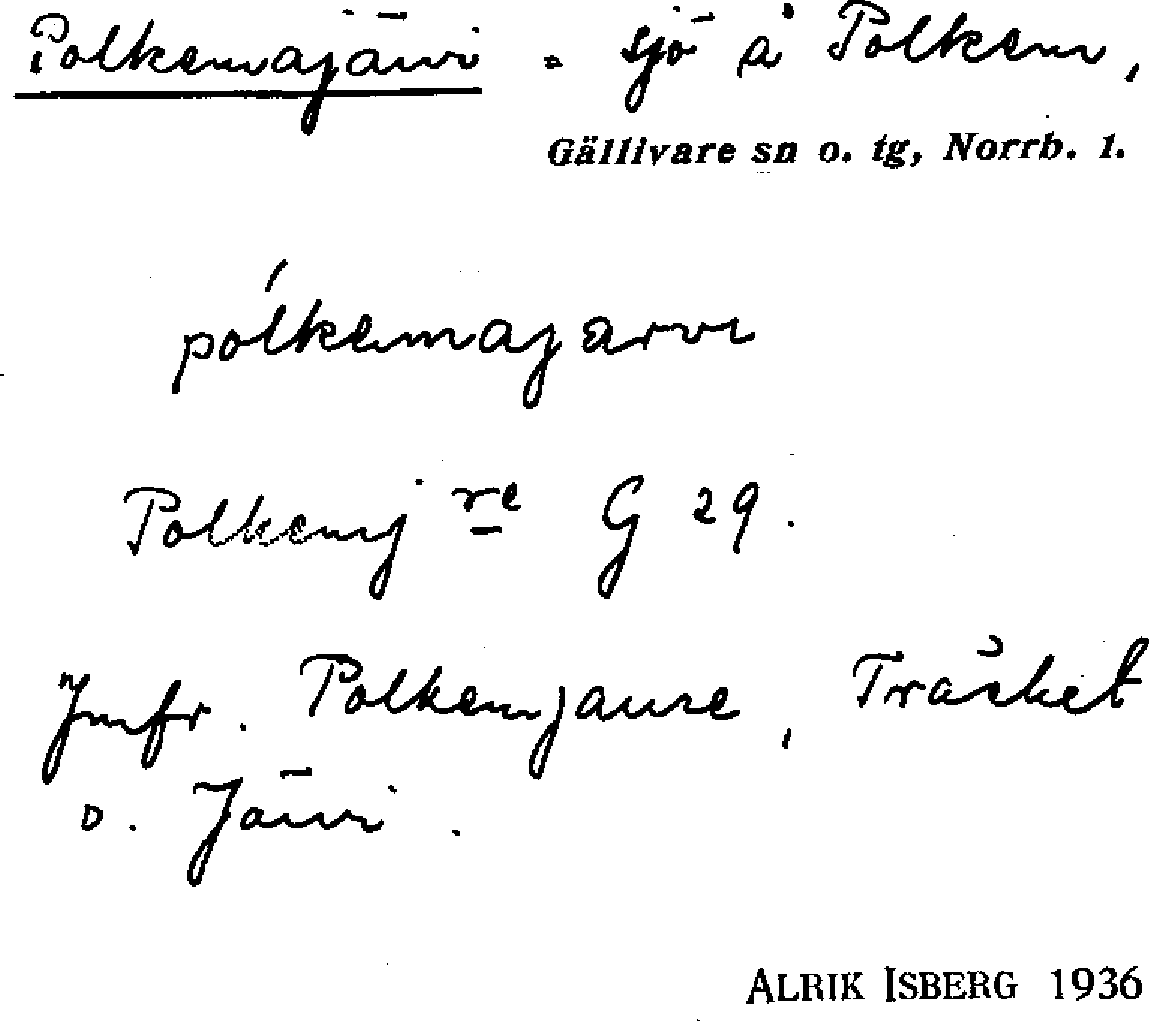 Polkemajärvi = sjö å Polkem,
Gällivare sn o. tg, Norrb. l.
pólkemajarvi
Polkemj re G 29.
Jmfr. Polkemjaure, Träsket
o. Järvi.
ALRIK ISBERG 1936